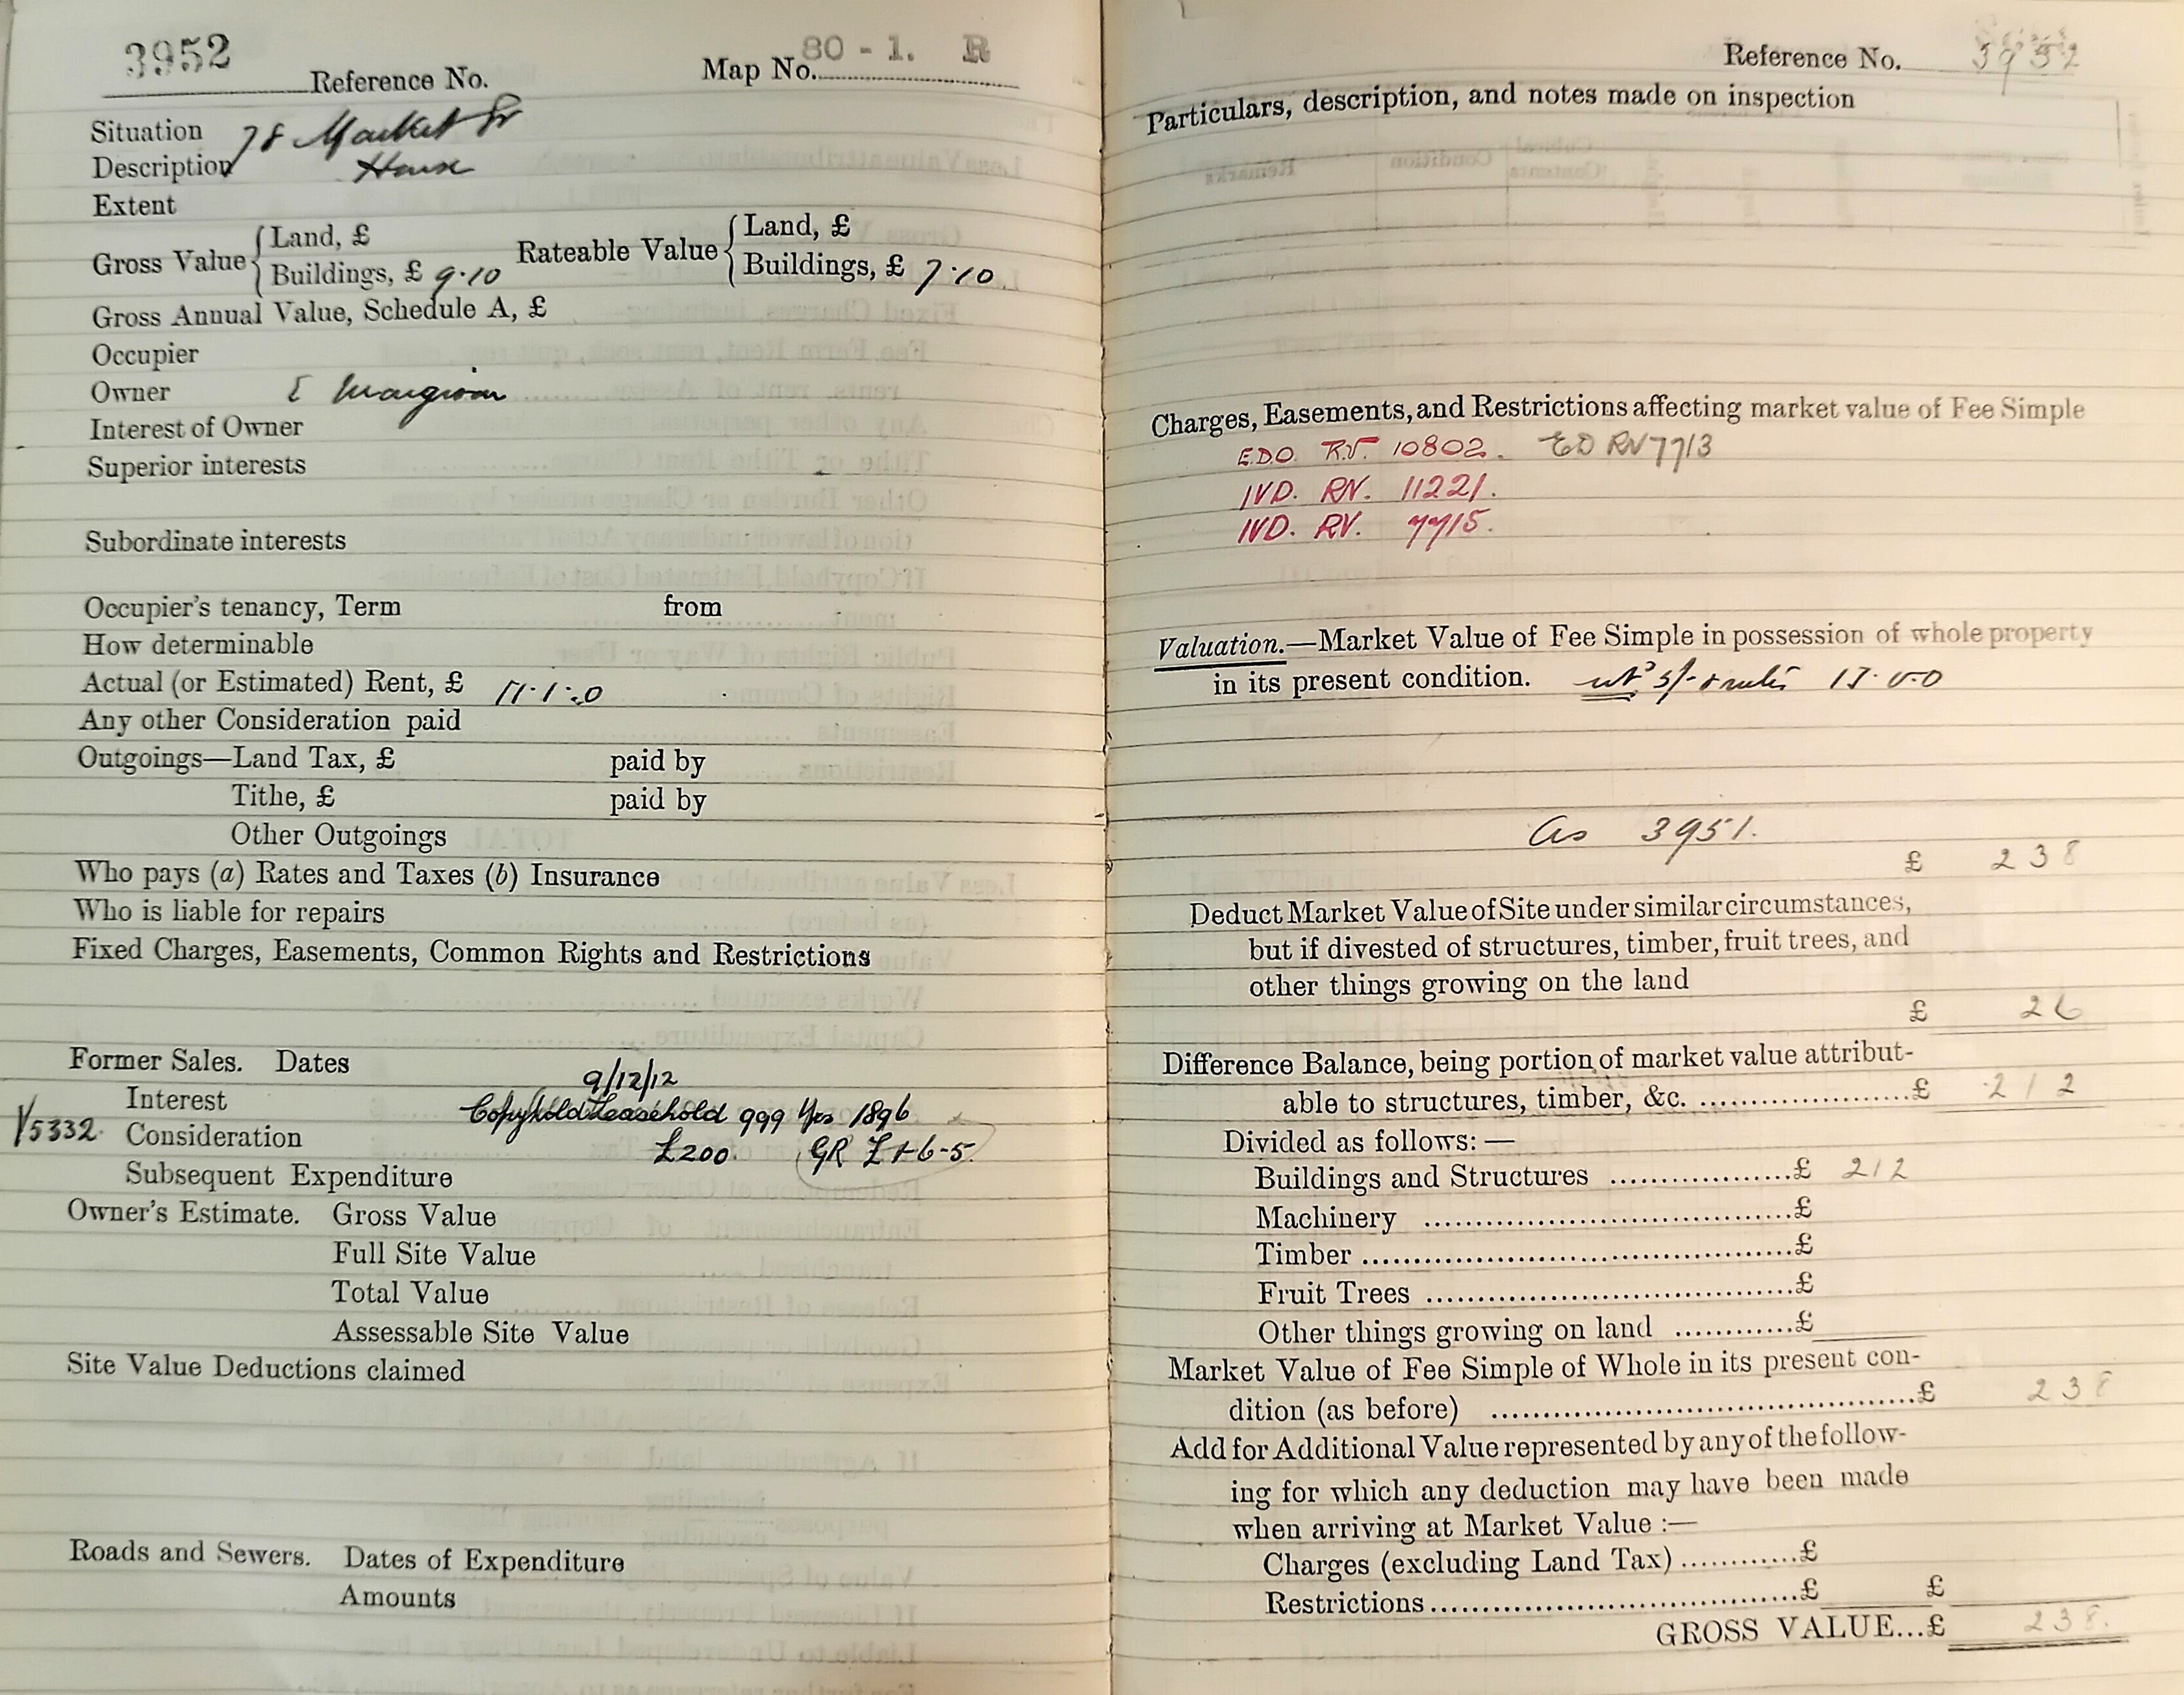 3952 Reference No. Map No. 80 - 1. R
Situation 78 Market St
Description House
Extent
Gross Value { Land, £
Buildings, £ 9.10
Rateable Value { Land, £
Buildings, £ 7.10
Gross Annual Value, Schedule A, £
Occupier
Owner E
Interest of Owner
Superior interests
Subordinate interests
Occupier's tenancy, Term from
How determinable
Actual (or Estimated) Rent, £
Any other Consideration paid
Outgoings—Land Tax, £ paid by
Tithe, £ paid by
Other Outgoings
Who pays (a) Rates and Taxes (b) Insurance
Who is liable for repairs
Fixed Charges, Easements, Common Rights and Restrictions
Former Sales. Dates 9/12/12
Interest Copyhold Leasehold 999 Yrs 1896
Y5332 Consideration £200. GR £1-6-5.
Subsequent Expenditure
Owner's Estimate. Gross Value
Full Site Value
Total Value
Assessable Site Value
Site Value Deductions claimed
Roads and Sewers. Dates of Expenditure
Amounts
Reference No. 3952
Particulars, description, and notes made on inspection
Charges, Easements, and Restrictions affecting market value of Fee Simple
E.D.O. R.V. 10802. ED RV 7713
IVD. RN. 11221.
IVD. RV. 7715.
Valuation.—Market Value of Fee Simple in possession of whole property
in its present condition.
As 3951.
£ 238
Deduct Market Value of Site under similar circumstances,
but if divested of structures, timber, fruit trees, and
other things growing on the land
£ 26
Difference Balance, being portion of market value attribut-
able to structures, timber, &c. ....................£ 212
Divided as follows: —
Buildings and Structures ..................£ 212
Machinery .....................................£
Timber ...........................................£
Fruit Trees .....................................£
Other things growing on land ............£
Market Value of Fee Simple of Whole in its present con-
dition (as before) ..........................................£ 238
Add for Additional Value represented by any of the follow-
ing for which any deduction may have been made
when arriving at Market Value :—
Charges (excluding Land Tax) ............£
Restrictions .....................................£ £
GROSS VALUE...£ 238.